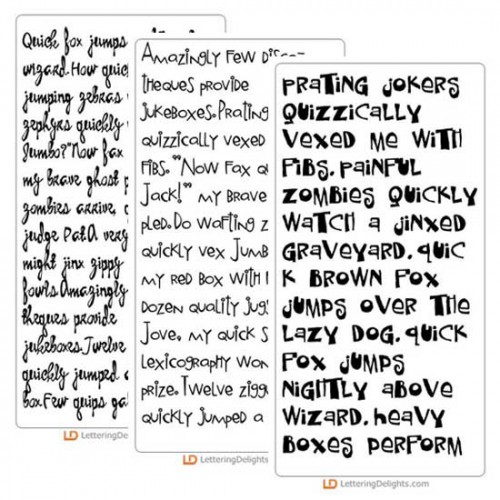 Quick fox jumps
wizard. How quic
jumping zebras
zephyrs quickly
Jumbo?" Now fax
my brave ghost p
zombies arrive,
judge Pat.A very
might jinx zippy
fowls.Amazingly
theques provide
jukeboxes.Twelve
quickly jumped a
box.Few quips ga
LD LetteringDeligh
Amazingly few disco
theques provide
jukeboxes.Prating
quizzically vexed
fibs. "Now fax q
Jack!" my brave
pled.Do wafting z
quickly vex Jumb
my red box with
dozen quality jug
Jove, my quick s
Lexicography won
prize.Twelve zigg
quickly jumped a
LD LetteringDelights
Prating jokers
quizzically
vexed me with
fibs.Painful
zombies quickly
watch a jinxed
graveyard.Quic
k brown fox
jumps over the
lazy dog.Quick
fox jumps
nightly above
wizard.Heavy
boxes perform
LD LetteringDelights.com